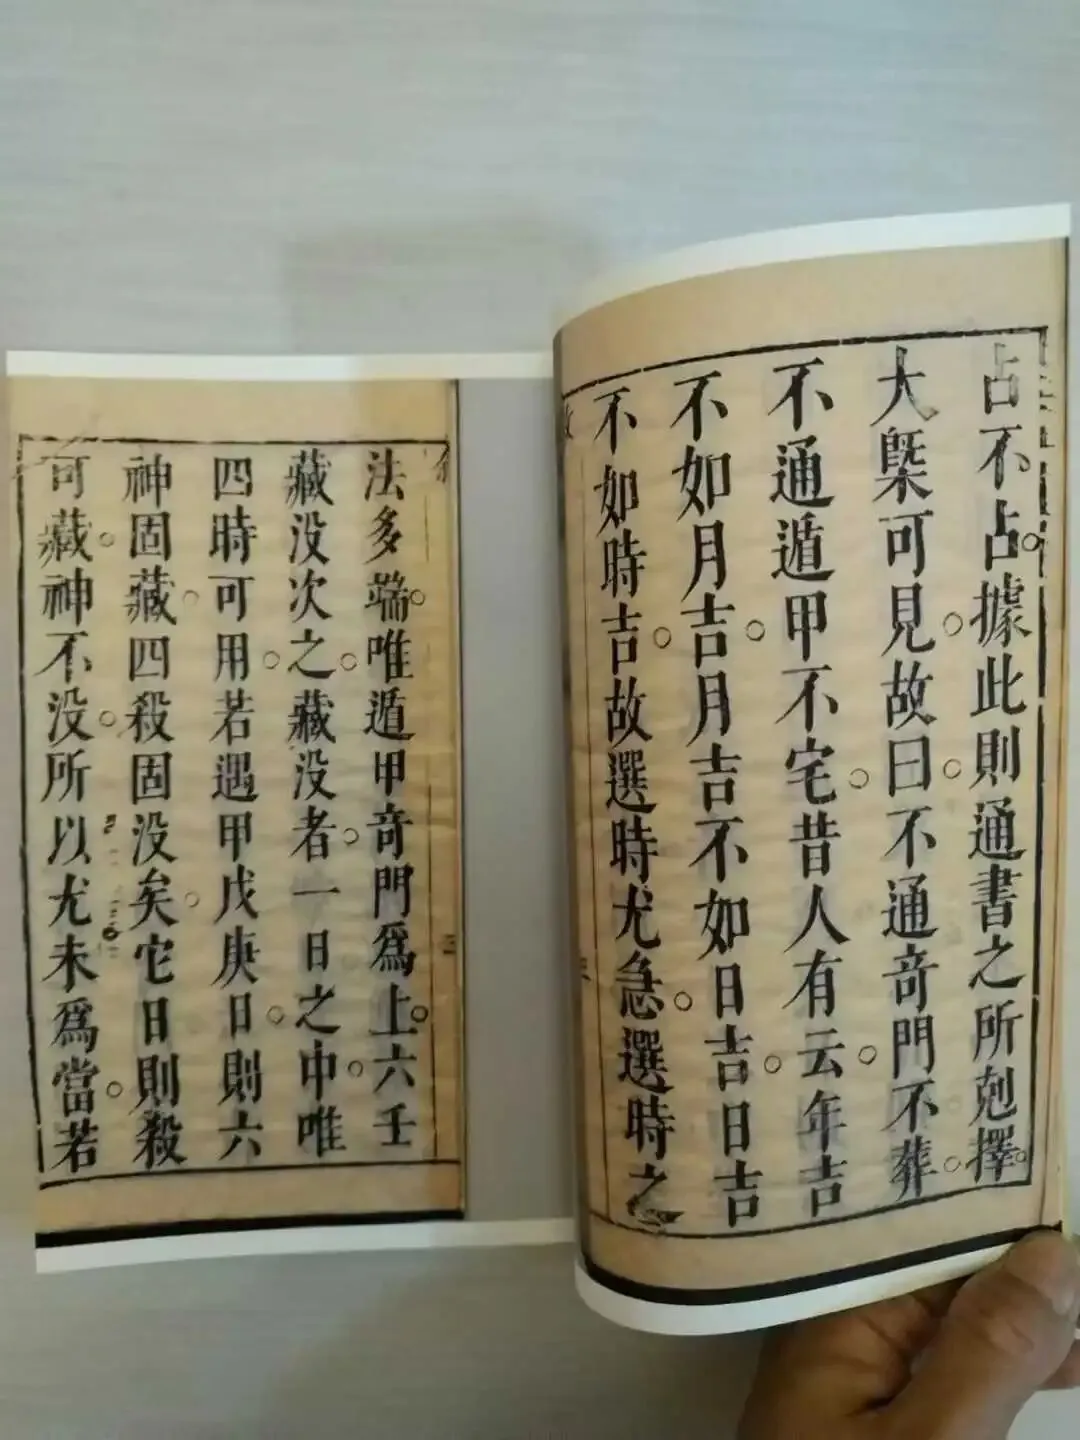 占不占據此則通書之所剋擇
大槩可見。故曰。不通竒門不葬。
不通遁甲不宅。昔人有云。年吉
不如月吉。月吉不如日吉。日吉
不如時吉。故選時尤急。選時之
法多端。唯遁甲竒門爲上。六壬
藏没次之。藏没者。一日之中。唯
四時可用。若遇甲戊庚日。則六
神固藏。四殺固没矣。它日則殺
可藏。神不没。所以尤未爲當。若